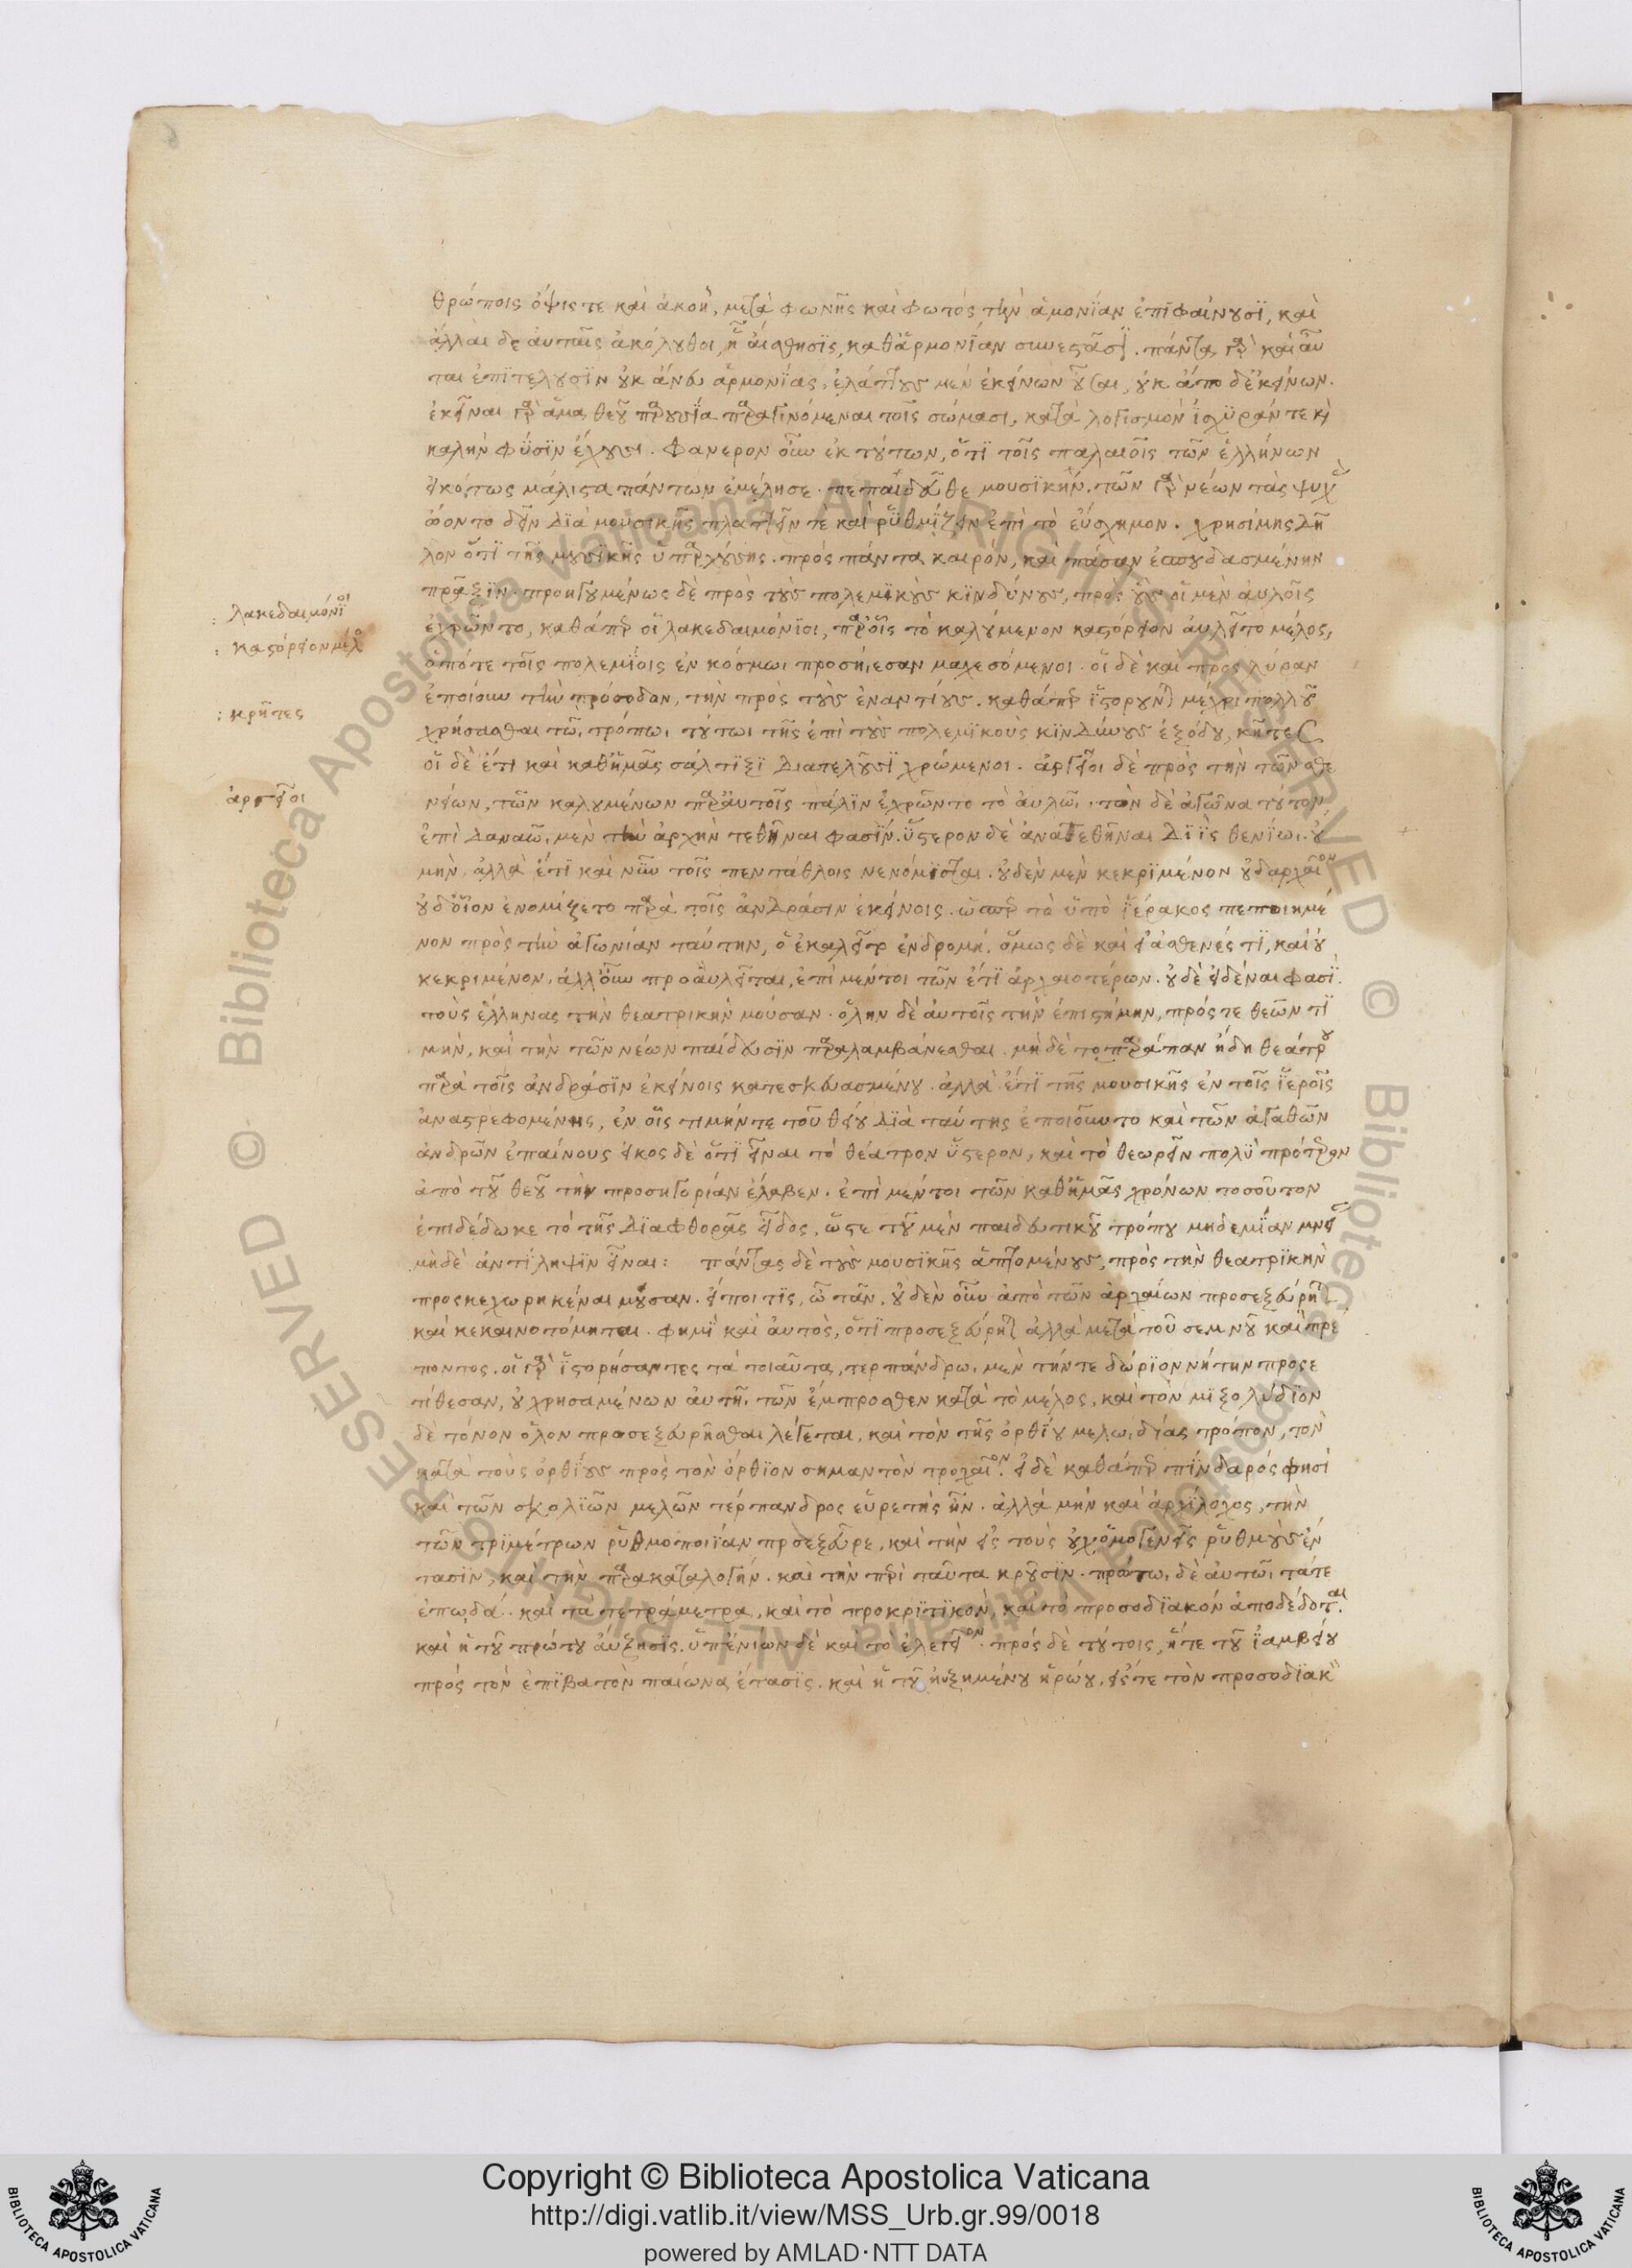 θρώποις ὄψις τε καὶ ἀκοή, μετὰ φωνῆς καὶ φωτὸς τὴν ἁμονίαν ἐπιφαίνουσι, καὶ
ἄλλαι δὲ αὐταῖς ἀκόλουθοι, ᾗ αἰσθησις, καθ' ἁρμονίαν συνεστᾶσι. πάντα γὰρ καὶ αὗ
ται ἐπιτελοῦσιν οὐκ ἄνευ ἁρμονίας, ἐλάττους μὲν ἐκείνων οὖσαι, οὐκ ἄπο δ' ἐκείνων.
ἐκεῖναι γὰρ ἅμα θεοῦ παρουσία παραγινόμεναι τοῖς σώμασι, κατὰ λογισμὸν ἰσχυράν τε καὶ
καλὴν φύσιν ἔχουσι. Φανερὸν οὖν ἐκ τούτων, ὅτι τοῖς παλαιοῖς τῶν ἑλλήνων
εἰκότως μάλιστα πάντων ἐμέλησε πεπαιδεῦσθαι μουσικήν. τῶν γὰρ νέων τὰς ψυχὰς
ᾤοντο δεῖν διὰ μουσικῆς πλάττειν τε καὶ ῥυθμίζειν ἐπὶ τὸ εὔσχημον. χρησίμης δῆ
λον ὅτι τῆς μουσικῆς ὑπαρχούσης πρὸς πάντα καιρὸν, καὶ πᾶσαν ἐσπουδασμένην
πρᾶξιν. προηγουμένως δὲ πρὸς τοὺς πολεμικοὺς κινδύνους, πρὸς οὓς οἱ μὲν αὐλοῖς
λακεδαιμόνιοι
ἐχρῶντο, καθάπερ οἱ λακεδαιμόνιοι, παρ' οἷς τὸ καλούμενον καστόρειον αὐλεῖτο μέλος,
καστόρειον μέλος
ὁπότε τοῖς πολεμίοις ἐν κόσμωι προσήιεσαν μαχεσόμενοι. οἱ δὲ καὶ πρὸς λύραν
ἐποίουν τὴν πρόσοδον, τὴν πρὸς τοὺς ἐναντίους. καθάπερ ἱστοροῦνται μέχρι πολλοῦ
κρῆτες
χρήσασθαι τῶι τρόπωι τούτωι τῆς ἐπὶ τοὺς πολεμικοὺς κινδύνους ἐξόδου, κρῆτες
οἱ δὲ ἔτι καὶ καθ' ἡμᾶς σάλπιξι διατελοῦσι χρώμενοι. ἀργεῖοι δὲ πρὸς τὴν τῶν σθε
ἀργεῖοι
νείων, τῶν καλουμένων παρ' αὐτοῖς πάλιν ἐχρῶντο τὸ αὐλῶι. τὸν δὲ ἀγῶνα τοῦτον
ἐπὶ δαναῶι μὲν τὴν ἀρχὴν τεθῆναι φασίν. ὕστερον δὲ ἀνατεθῆναι διὶ σθενίωι. οὐ
μὴν ἀλλὰ ἔτι καὶ νῦν τοῖς πεντάθλοις νενόμισται. οὐδὲν μὲν κεκριμένον οὐδ' ἀρχαῖον
οὐδ' οἷον ἐνομίζετο παρὰ τοῖς ἀνδράσιν ἐκείνοις. ὥσπερ τὸ ὑπὸ ἱέρακος πεποιημέ
νον πρὸς τὴν ἀγωνίαν ταύτην, ὃ ἐκαλεῖτο ἐνδρομή. ὅμως δὲ καὶ εἰ ἀσθενές τι, καὶ οὐ
κεκριμένον, ἀλλ' οὖν προσαυλεῖται, ἐπὶ μέντοι τῶν ἔτι ἀρχαιοτέρων. οὐδὲ εἰδέναι φασὶ
τοὺς ἕλληνας τὴν θεατρικὴν μοῦσαν. ὅλην δὲ αὐτοῖς τὴν ἐπιστήμην, πρός τε θεῶν τι
μὴν, καὶ τὴν τῶν νέων παίδευσιν παραλαμβάνεσθαι. μὴ δὲ τοπαράπαν ἤδη θεάτρου
παρὰ τοῖς ἀνδράσιν ἐκείνοις κατεσκευασμένου. ἀλλὰ ἔτι τῆς μουσικῆς ἐν τοῖς ἱεροῖς
ἀναστρεφομένης, ἐν οἷς τιμήν τε τοῦ θείου διὰ ταύτης ἐποιοῦντο καὶ τῶν ἀγαθῶν
ἀνδρῶν ἐπαίνους εἰκὸς δὲ ὅτι εἶναι τὸ θέατρον ὕστερον, καὶ τὸ θεωρεῖν πολὺ πρότερον
ἀπὸ τοῦ θεοῦ τὴν προσηγορίαν ἔλαβεν. ἐπὶ μέντοι τῶν καθ' ἡμᾶς χρόνων τοσοῦτον
ἐπιδέδωκε τὸ τῆς διαφθορᾶς εἶδος, ὥστε τοῦ μὲν παιδευτικοῦ τρόπου μηδεμίαν μνεί
μηδὲ ἀντίληψιν εἶναι: πάντας δὲ τοὺς μουσικῆς ἁπτομένους, πρὸς τὴν θεατρικὴν
προσκεχωρηκέναι μοῦσαν. εἴποι τις, ὦ τᾶν, οὐδὲν οὖν ἀπὸ τῶν ἀρχαίων προσεξεύρηται
καὶ κεκαινοτόμηται. φημὶ καὶ αὐτὸς, ὅτι προσεξεύρηται ἀλλὰ μετὰ τοῦ σεμνοῦ καὶ πρέ
ποντος. οἱ γὰρ ἱστορήσαντες τὰ τοιαῦτα, τερπάνδρωι μὲν τήν τε δώριον νήτην προσε
τίθεσαν, οὐ χρησαμένων αὐτῆι τῶν ἔμπροσθεν κατὰ τὸ μέλος, καὶ τὸν μιξολύδιον
δὲ τόνον ὅλον προσεξευρῆσθαι λέγεται, καὶ τὸν τῆς ὀρθίου μελωιδίας τρόπον, τὸν
κατὰ τοὺς ὀρθίους πρὸς τὸν ὄρθιον σημαντὸν τροχαῖον. εἰ δὲ καθάπερ πίνδαρός φησὶ
καὶ τῶν σκολιῶν μελῶν τέρπανδρος εὑρετὴς ἦν. ἀλλὰ μὴν καὶ ἀρχίλοχος, τὴν
τῶν τριμέτρων ῥυθμοποιίαν προσεξεῦρε, καὶ τὴν εἰς τοὺς οὐχ ὁμογενεῖς ῥυθμοὺς ἔν
τασιν, καὶ τὴν παρακαταλογήν. καὶ τὴν περὶ ταῦτα κροῦσιν. πρώτωι δὲ αὐτῶι τά τε
ἐπωδά. καὶ τὰ τετράμετρα, καὶ τὸ προκριτικὸν, καὶ τὸ προσοδιακὸν ἀποδέδοται.
καὶ ἡ τοῦ πρώτου αὔξησις. ὑπ' ἐνίων δὲ καὶ τὸ ἐλεγεῖον. πρὸς δὲ τούτοις, ἥ τε τοῦ ἰαμβείου
πρὸς τὸν ἐπιβατὸν παίωνα ἔτασις. καὶ ἡ τοῦ ηὐξημένου ἡρώου, εἴς τε τὸν προσοδιακὸν